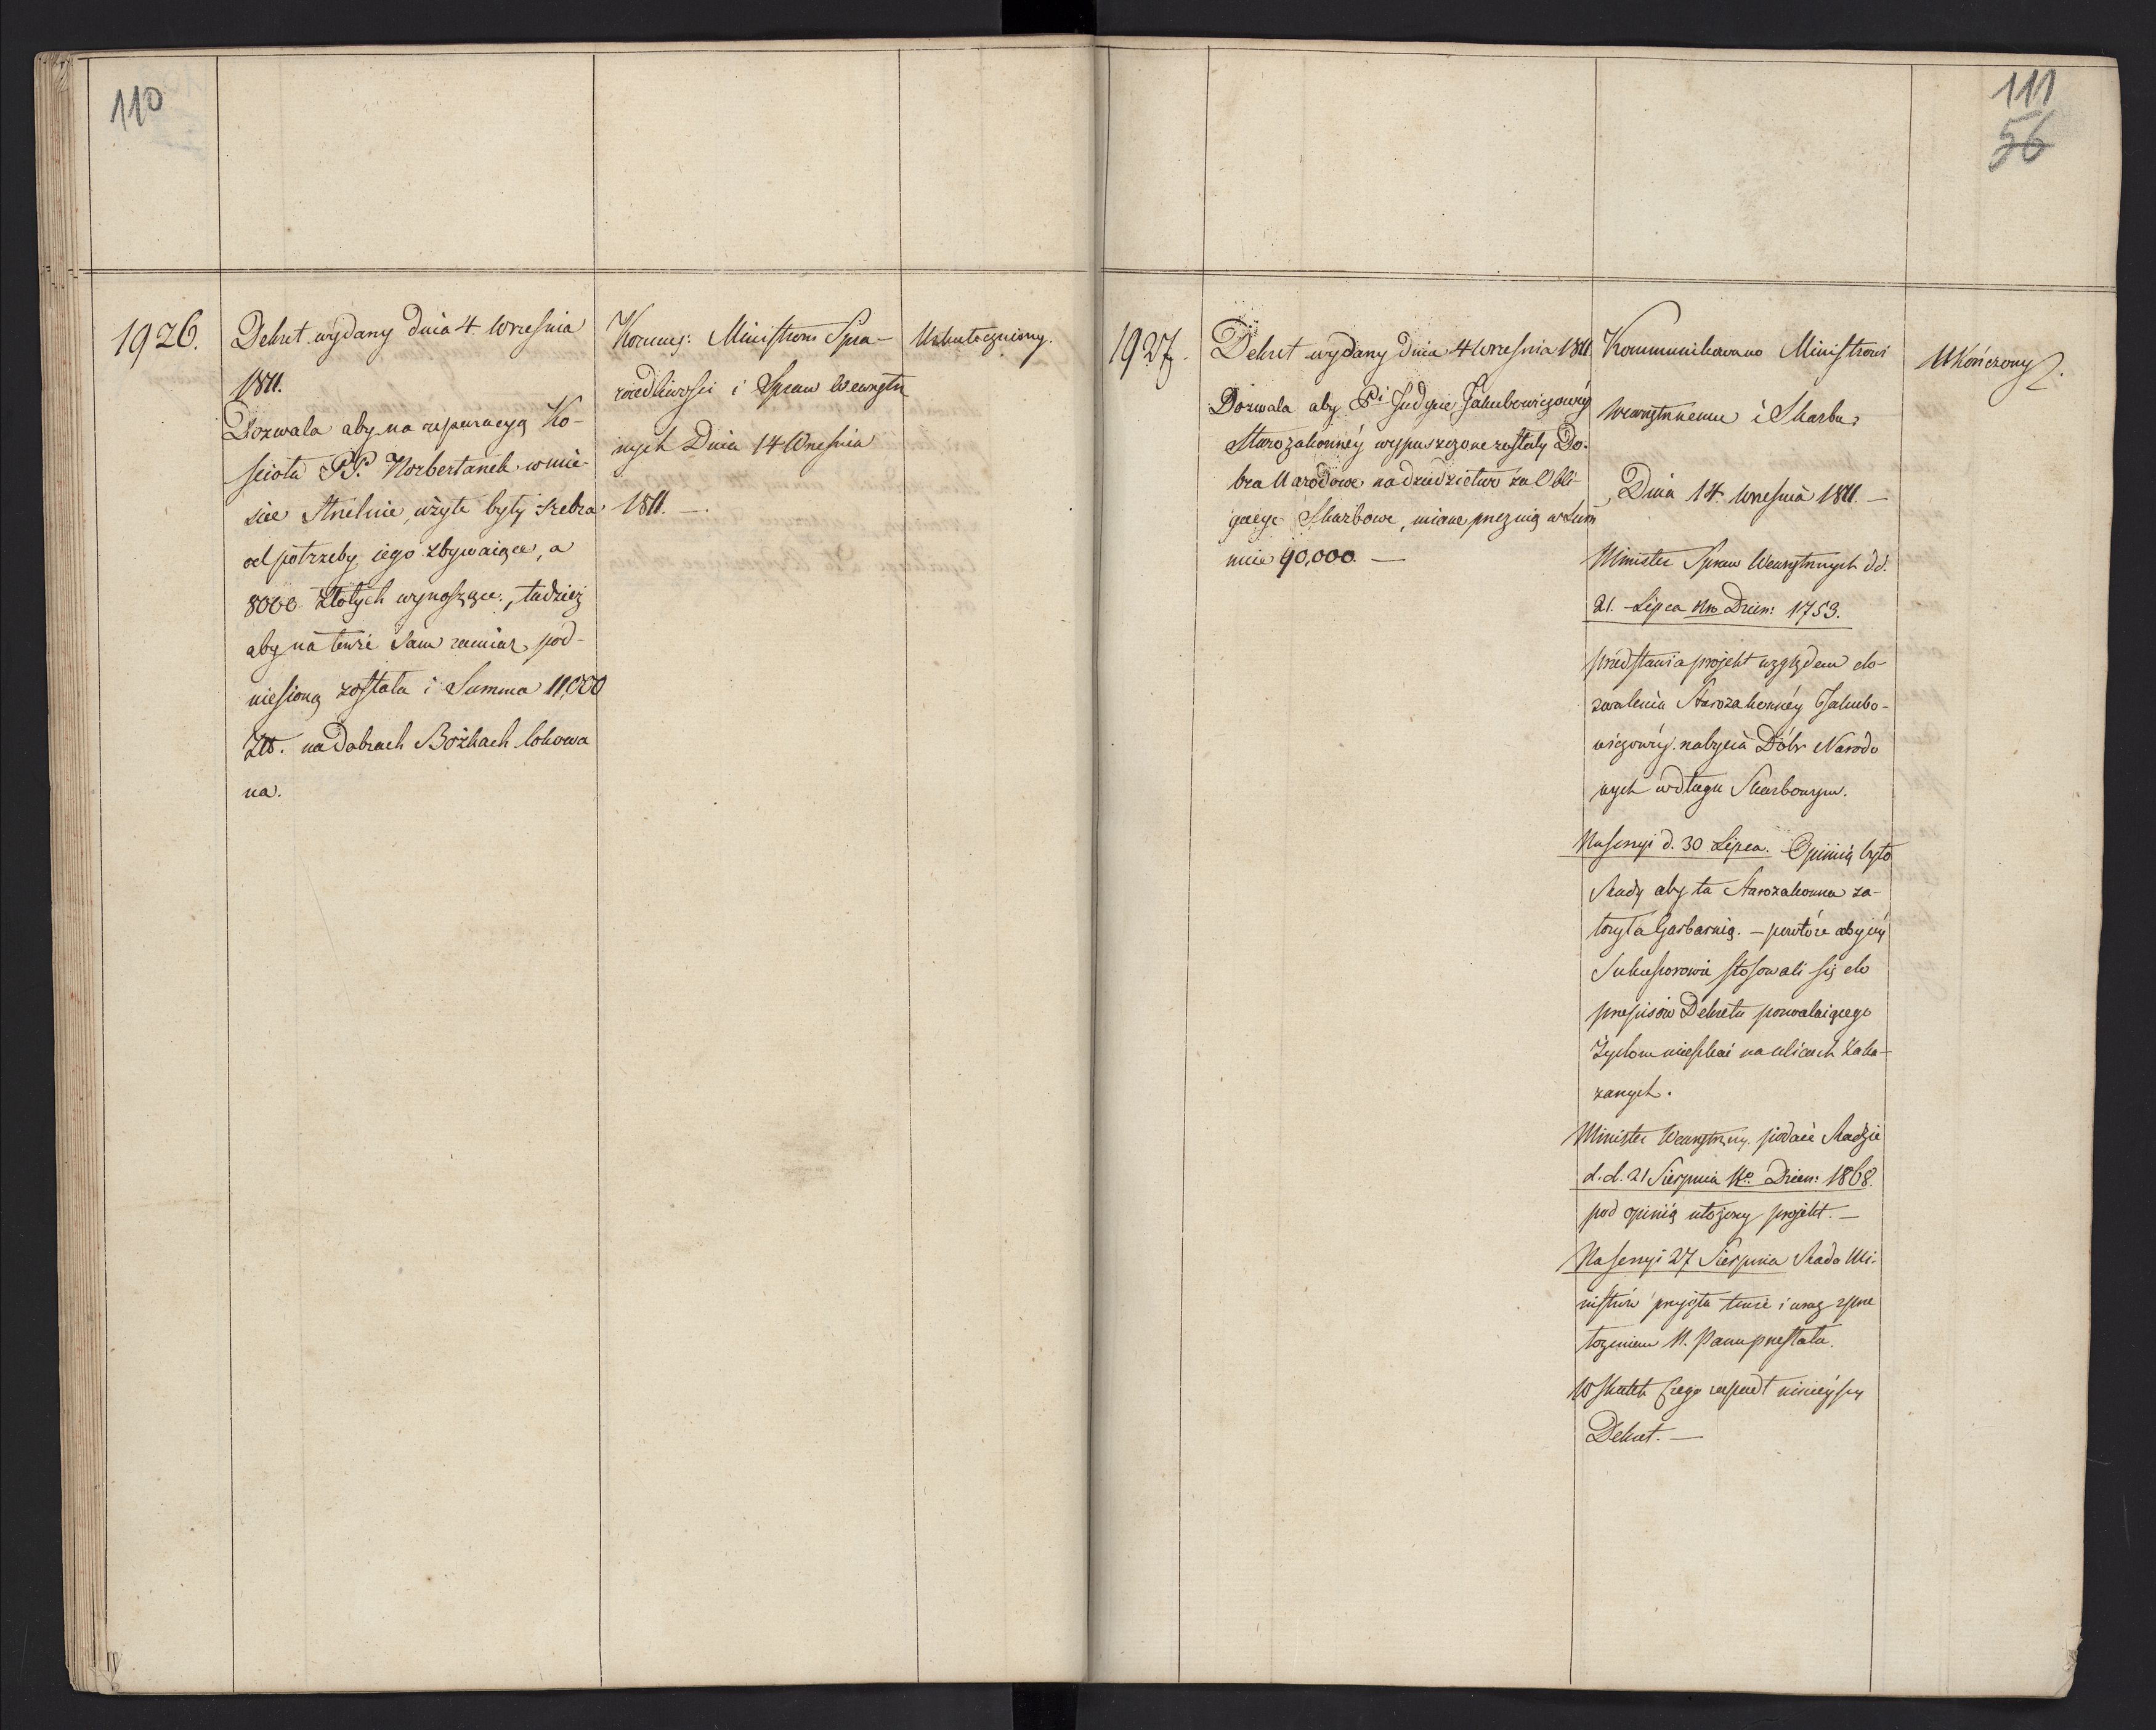 110
1926.
Dekret wydany dnia 4 Września
1811.
Dozwala aby na reparacyą Ko-
ścioła PP. Norbertanek w mie-
ście Strelnie, użyte były srebra
od potrzeby iego zbywaiące, a
8000 Złotych wynoszące, tudzież
aby na tenże sam zamiar pod-
niesioną została i Summa 11,000
Złł. na dobrach Bożkach lokowa
na.
Kommu: Ministrom Spra-
wiedliwości i Spraw Wewnętrz
nych Dnia 14 Września
1811. —
Uskuteczniony.
111
56
1927.
Dekret wydany dnia 4 Września 1811
Dozwala aby Pi Judycie Jakubowiczowéy
Starozakonnéy wypuszczone zostały Do-
bra Narodowe na dziedzictwo za Obli-
gacye Skarbowe, miane przez nią w Sum
mie 90,000. —
Kommunikowano Ministrowi
Wewnętrznemu i Skarbu
Dnia 14 Września 1811. —
Minister Spraw Wewnętrznych d.d.
21. Lipca Nro Dzien: 1753.
przedstawia projekt względem do-
zwolenia Starozakonnéy Jakubo-
wiczowéy nabycia Dóbr Narodo
wych w długu Skarbowym.
Na sessyi d. 30 Lipca. Opinią było
Rady aby ta Starozakonna za-
łożyła Garbarnią. — powtóre aby iéy
Sukcesorowie stosowali się do
przepisów Dekretu pozwalaiącego
Żydom mieszkać na ulicach zaka-
zanych.
Minister Wewnętrzny podaie Radzie
d.d. 21 Sierpnia No. Dzien: 1868.
pod opinią ułożony projekt. —
Na sessyi 27 Sierpnia Rada Mi-
nistrów przyjęła tenże i wraz z prze
łożeniem N. Panu przesłała.
W skutek czego zapadł ninieyszy
Dekret. —
Ukończony.